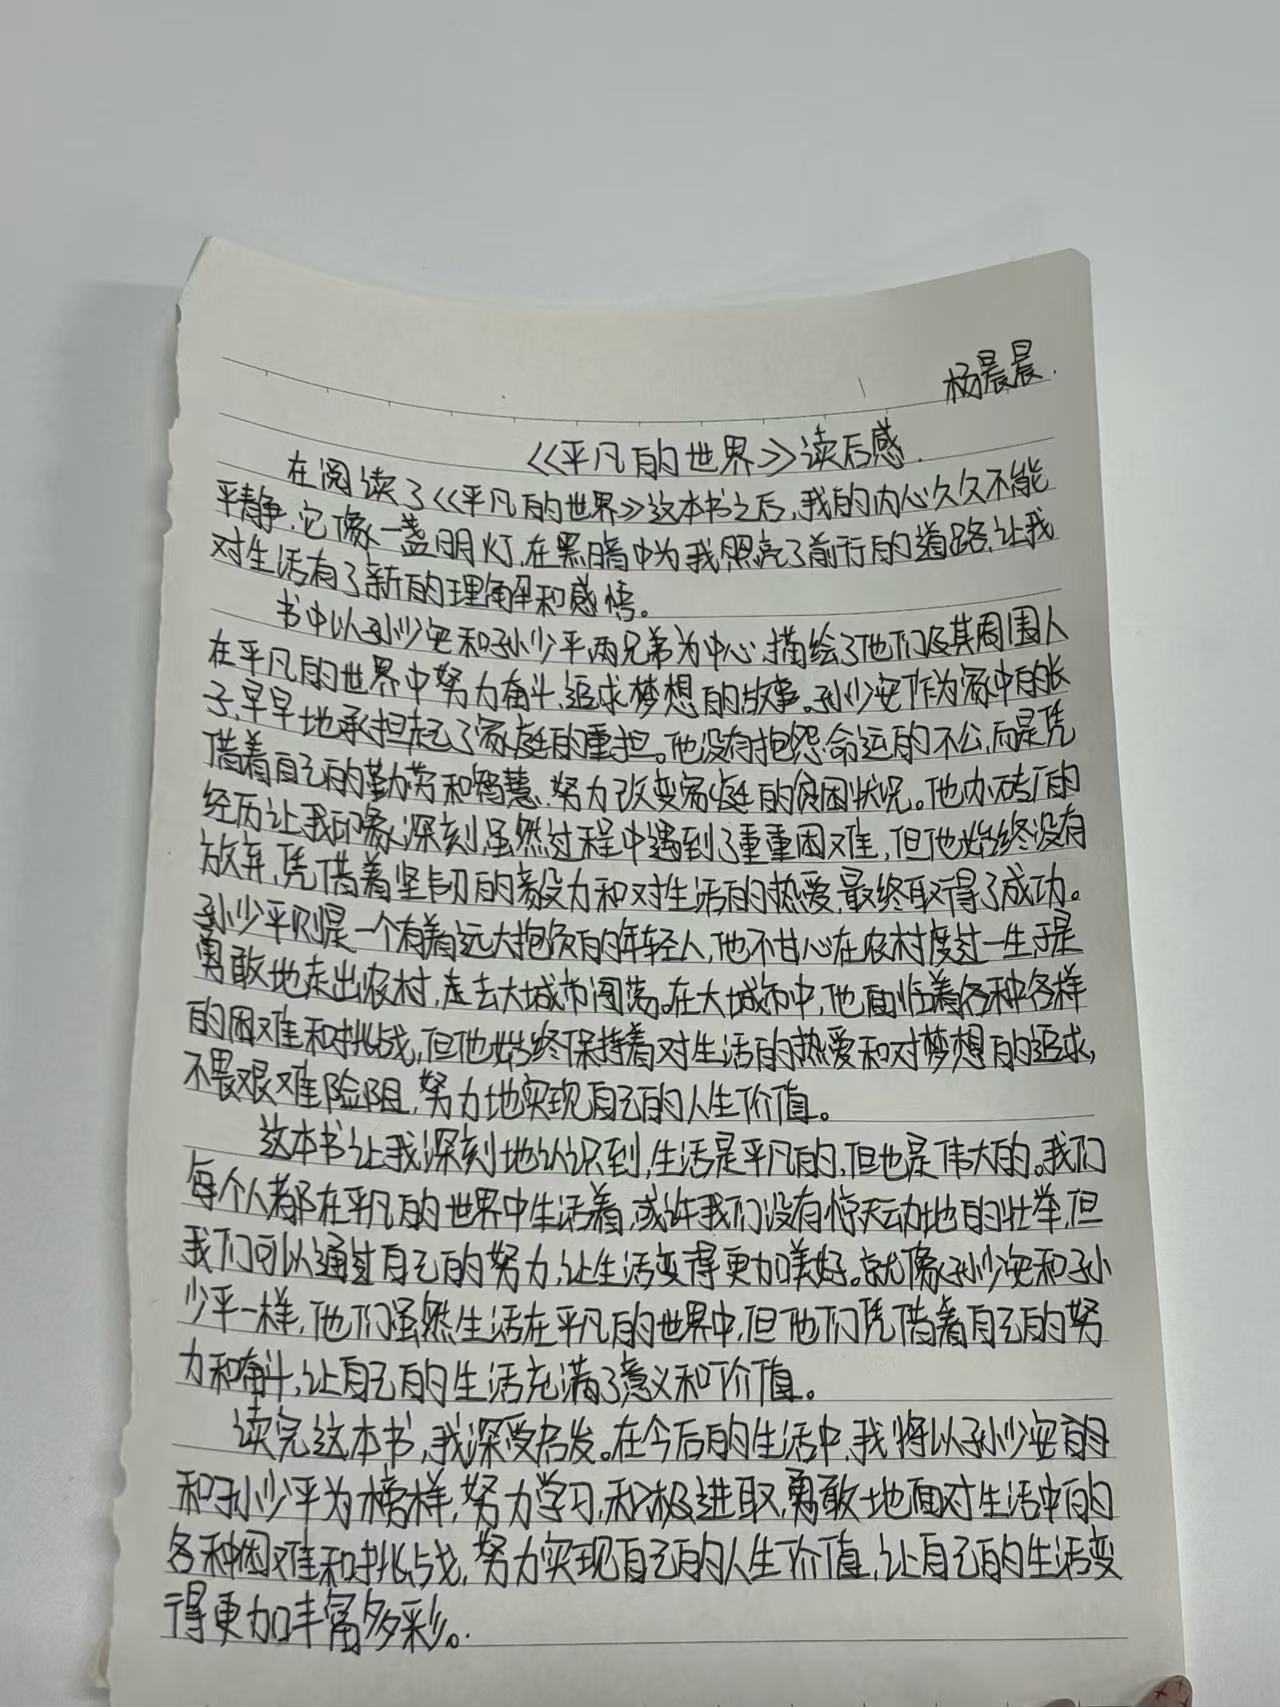 杨晨晨.
《平凡的世界》读后感.
在阅读了《平凡的世界》这本书之后,我的内心久久不能
平静,它像一盏明灯,在黑暗中为我照亮了前行的道路,让我
对生活有了新的理解和感悟。
书中以孙少安和孙少平两兄弟为中心,描绘了他们及其周围人
在平凡的世界中努力奋斗,追求梦想的故事。孙少安作为家中的长
子,早早地承担起了家庭的重担。他没有抱怨命运的不公,而是凭
借着自己的勤劳和智慧,努力改变家庭的贫困状况。他办砖厂的
经历让我印象深刻,虽然过程中遇到了重重困难,但他始终没有
放弃,凭借着坚韧的毅力和对生活的热爱,最终取得了成功。
孙少平则是一个有着远大抱负的年轻人,他不甘心在农村度过一生,于是
勇敢地走出农村,走去大城市闯荡。在大城市中,他面临着各种各样
的困难和挑战,但他始终保持着对生活的热爱和对梦想的追求,
不畏艰难险阻,努力地实现自己的人生价值。
这本书让我深刻地认识到,生活是平凡的,但也是伟大的。我们
每个人都在平凡的世界中生活着,或许我们没有惊天动地的壮举,但
我们可以通过自己的努力,让生活变得更加美好。就像孙少安和孙
少平一样,他们虽然生活在平凡的世界中,但他们凭借着自己的努
力和奋斗,让自己的生活充满了意义和价值。
读完这本书,我深受启发。在今后的生活中,我将以孙少安的
和孙少平为榜样,努力学习,积极进取,勇敢地面对生活中的
各种困难和挑战,努力实现自己的人生价值,让自己的生活变
得更加丰富多彩。